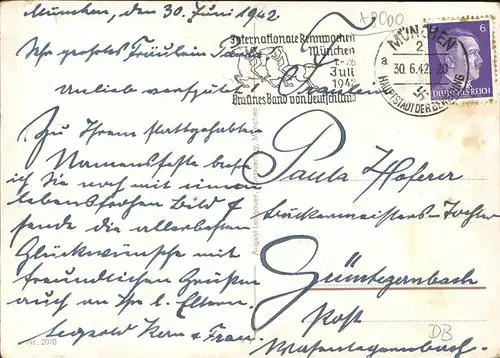 München, den 30. Juni 1942
Ihr geehrtes Fräulein Paula
Anlieb verspätet
Zu Ihrem stattgehabten
Namensfeste
ich Sie noch mit einem
lebensfrohen Bild &
sende die allerbesten
Glückwünsche mit
freundlichen Grüßen
auch an Ihre l. Eltern.
Leopold Kern & Frau.
Nr. 2070
August Lengauer
München
Internationale Rennwochen
München
Juli
1942
Braunes Band von Deutschland
MÜNCHEN
2
a
30.6.42. 20
HAUPTSTADT DER BEWEGUNG
6
DEUTSCHES REICH
Fräulein
Paula Hoferer
Bäckermeisters-Tochter
Güntegernbach
Post
DB